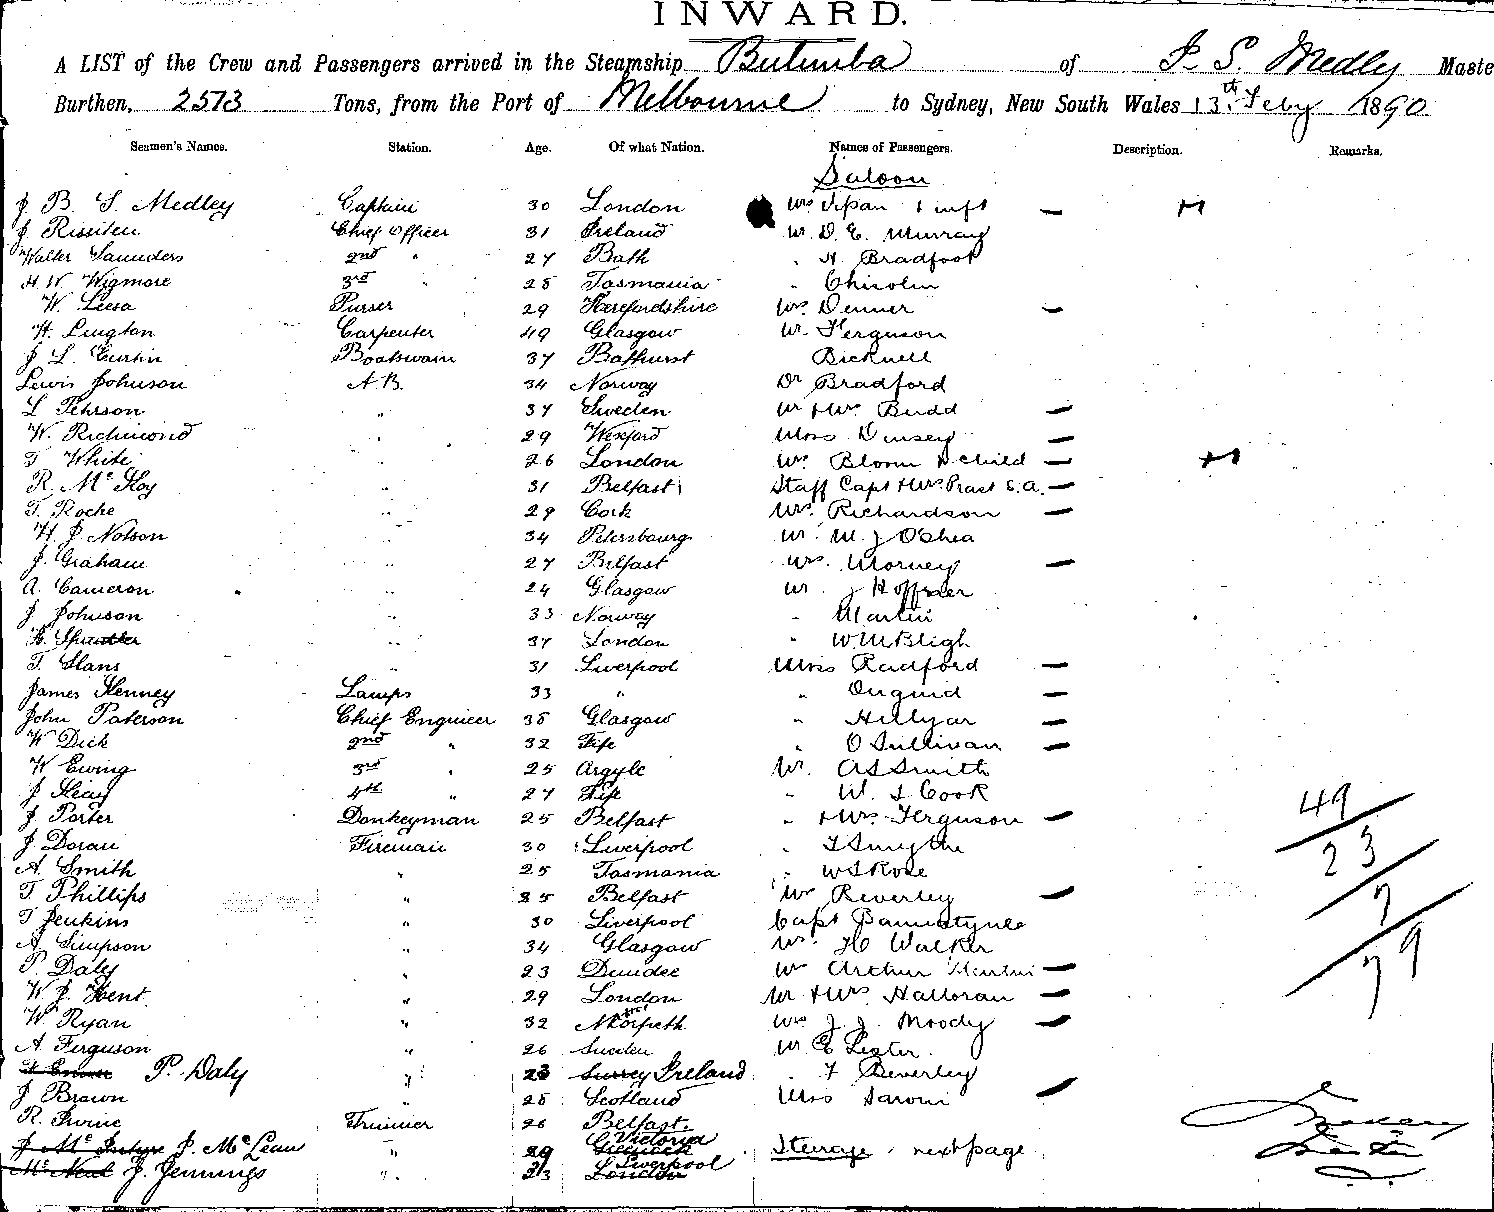 INWARD.
A LIST of the Crew and Passengers arrived in the Steamship Bulimba of J. S. Medley Maste
Burthen, 2573 Tons, from the Port of Melbourne to Sydney, New South Wales 13th Feby 1890
Seamen's Names. Station. Age. Of what Nation. Names of Passengers. Description. Remarks.
Saloon
J B. S. Medley Captain 30 London Mrs & inft —
J Captain Chief Officer 31 Ireland Mr. D. E. Murray
Walter Saunders 2nd " 27 Bath " A. Bradfoot
H. W. Wigmore 3rd " 25 Tasmania " Chisolm
W. Purser 29 Herefordshire Mrs Denner —
H. Lington Carpenter 49 Glasgow Mr. Ferguson
J L. Curtin Boatswain 37 Bathurst Bicknell
Lewis Johnson A.B. 34 Norway Dr Bradford
L Pehrson " 37 Sweden Mr & Mrs Budd —
W. Richmond " 29 Wexford Miss —
T. White " 26 London Mrs Bloom & child —
R. McKoy " 31 Belfast Staff Capt & Mrs S.A. —
T. Roche " 29 Cork Mrs. Richardson —
H. J. Nolson " 34 Petersbourg Mr. M. J O'Shea
J. Graham " 27 Belfast Mrs. Morney —
A. Cameron " 24 Glasgow Mr. J
J Johnson " 33 Norway " Martin
" 37 London " W. M. Bligh
T. " 31 Liverpool Miss Radford —
James Kenney Lamps 33 " " —
John Paterson Chief Engineer 38 Glasgow " Hillyar —
W Dick 2nd " 32 Fife " O'Sullivan —
W Ewing 3rd " 25 Argyle Mr. A S Smith
J 4th " 27 Fife " W. Cook
J. Porter Donkeyman 25 Belfast " & Mrs. Ferguson —
J. Doran Fireman 30 Liverpool " Smythe
A. Smith " 25 Tasmania " W S Rose
T. Phillips " 25 Belfast " Mr Beverley —
T Jenkins " 30 Liverpool Capt
A. Simpson " 34 Glasgow Mr. H Walker
P. Daly " 23 Dundee Mr Arthur Martin —
W J. Kent " 29 London Mr & Mrs Halloran —
W. Ryan " 32 Morpeth Mrs J. J. Moody —
A. Ferguson " 26 Sweden Mr E Lester.
P. Daly " 23 Surrey Ireland " F Beverley
J Brown " 28 Scotland Miss —
R. Irvine Trimmer 26 Belfast.
J McIntyre J. McLean " 29 Victoria
McNeil J. Jennings " 23 London Liverpool
Steerage next page
49
23
7
79